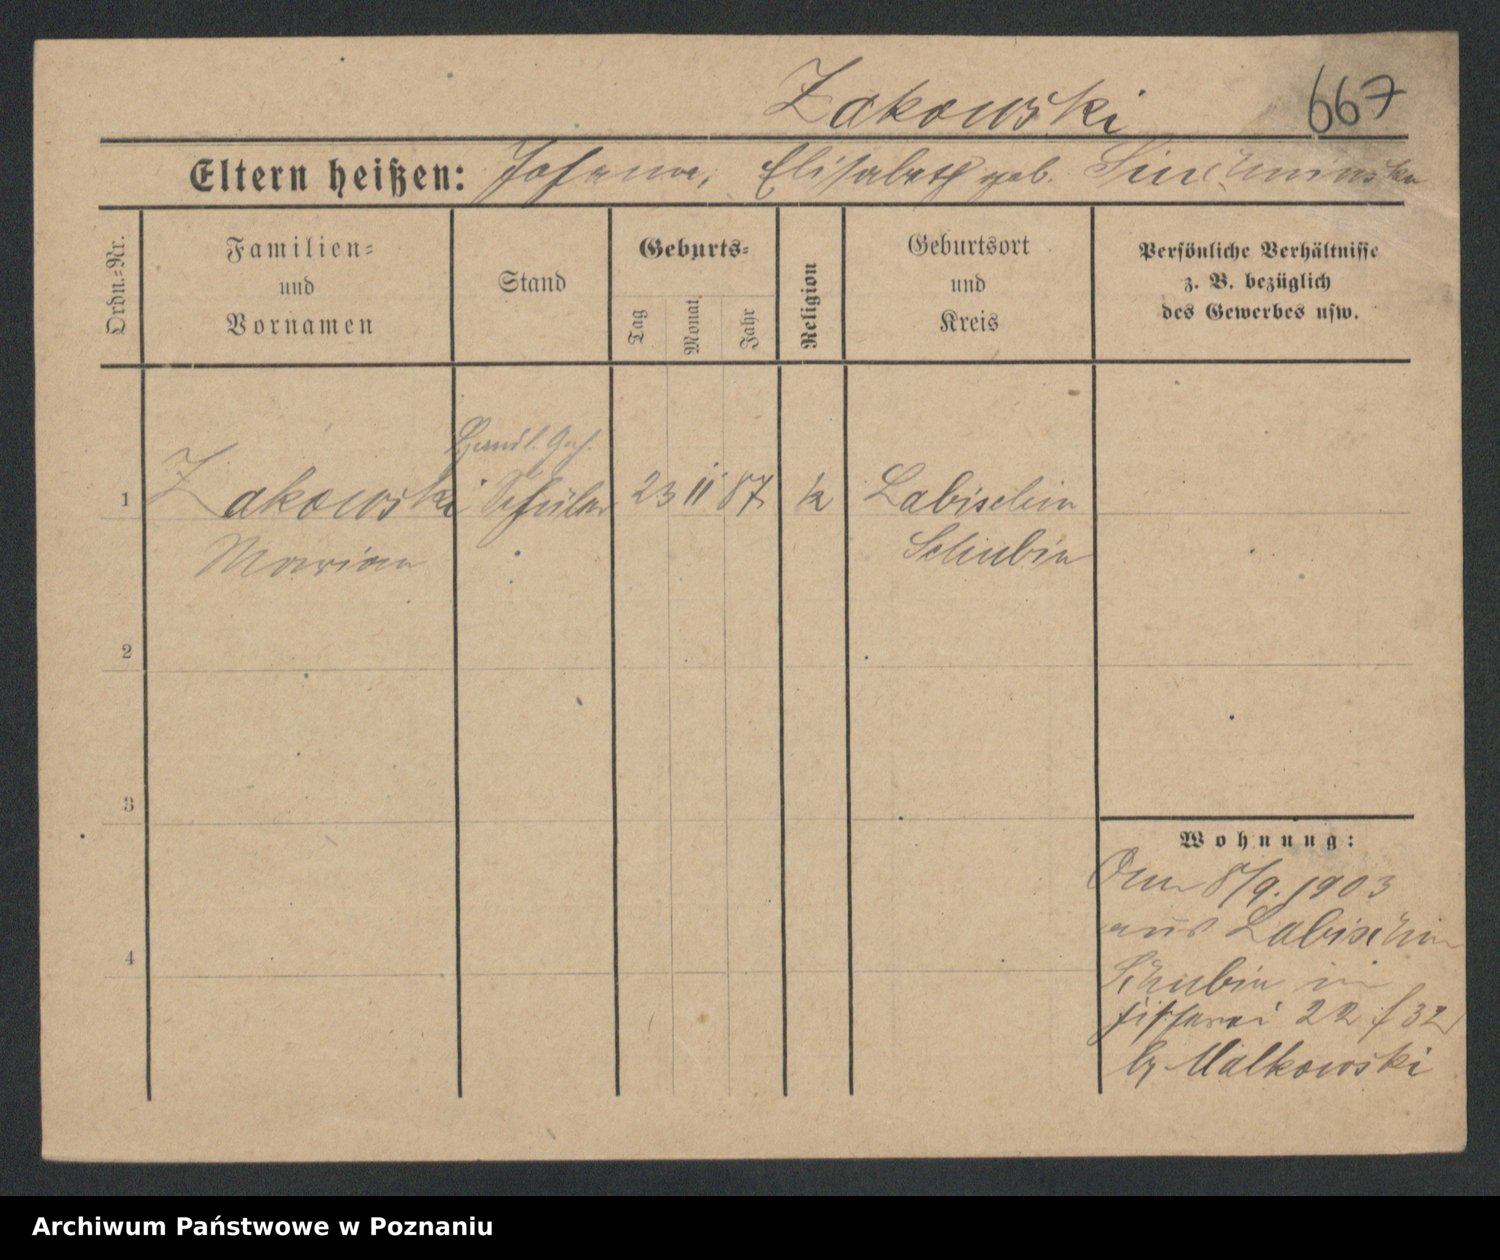 Zakowski 667
Eltern heißen: Johann, Elisabeth geb.
Ordn.=Nr.
Familien=
und
Vornamen
Stand
Geburts=
Tag
Monat
Jahr
Religion
Geburtsort
und
Kreis
Persönliche Verhältnisse
z. B. bezüglich
des Gewerbes usw.
Handl. Geh.
1 Zakowski Schüler 23 11 87 k Labischin
Marian Schubin
2
3
Wohnung:
8/9. 1903
aus Labischin
4
Schubin in
Fischerei 22 f 32
b/ Malkowski
Archiwum Państwowe w Poznaniu